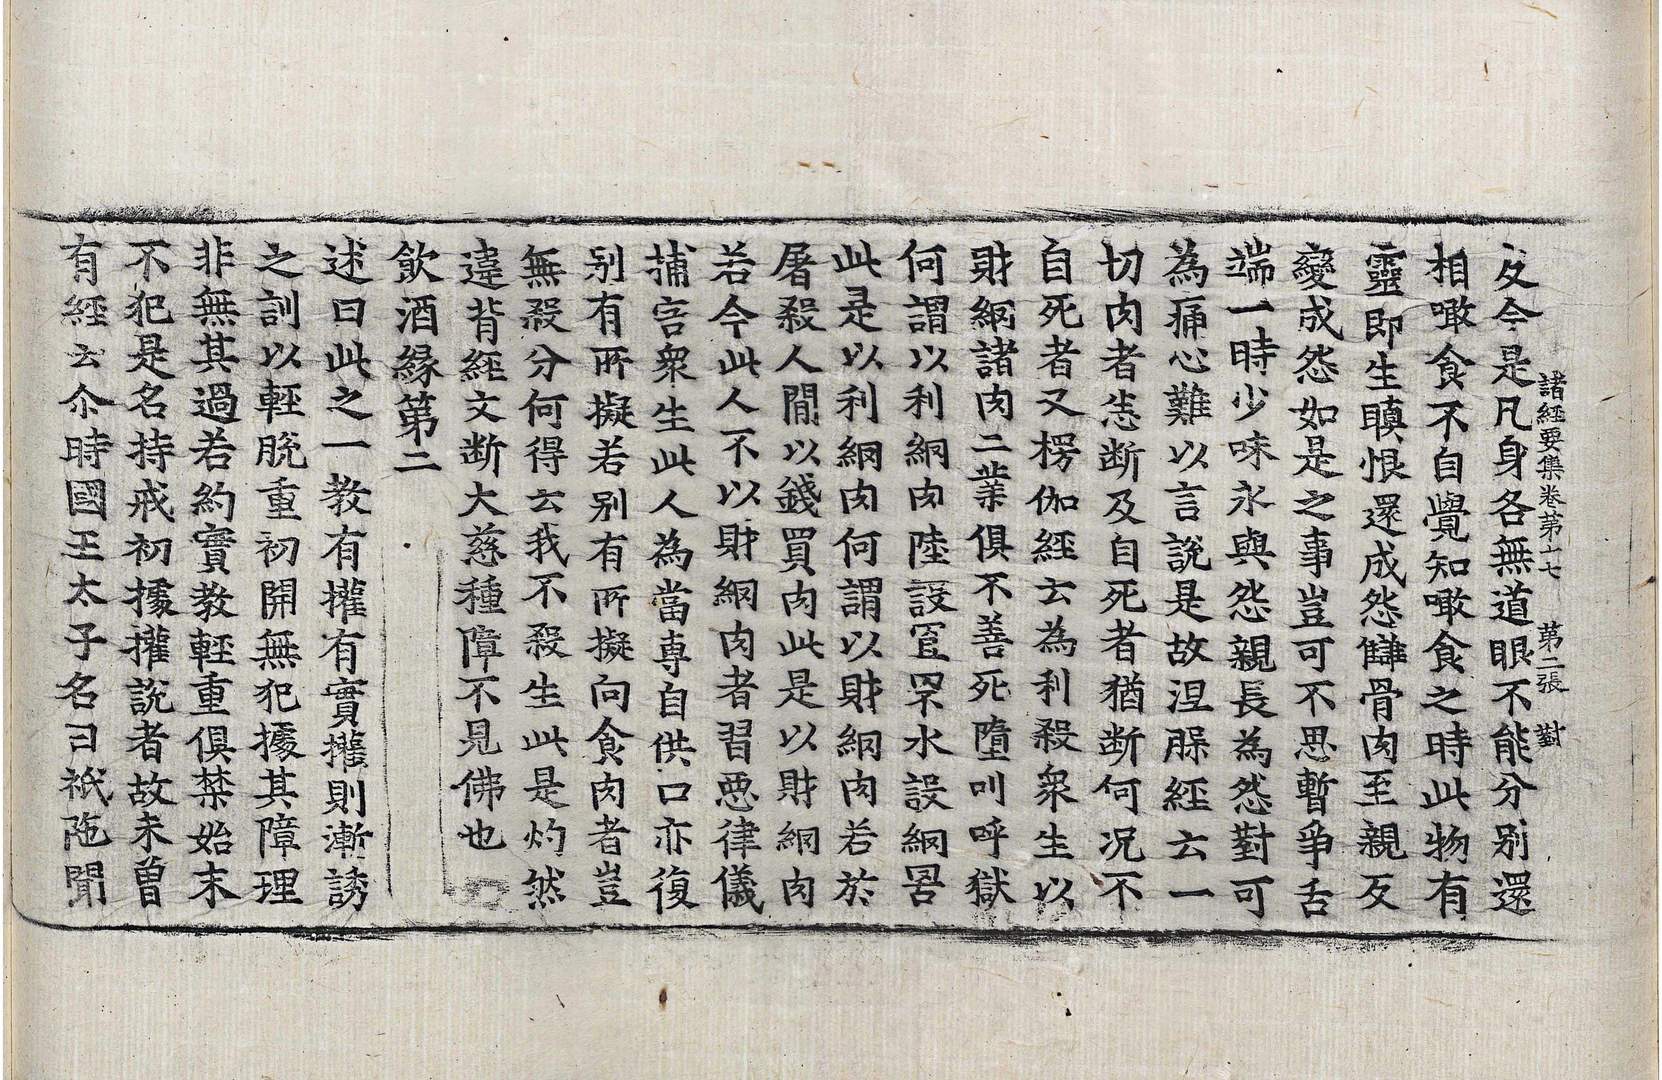 諸經要集卷第十七 第二張 對
及今是凡身各無道眼不能分別還
相噉食不自覺知噉食之時此物有
靈即生瞋恨還成怨讎骨肉至親反
變成怨如是之事豈可不思暫爭舌
端一時少味永與怨親長為怨對可
為痛心難以言說是故涅脲經云一
切肉者悉断及自死者猶断何况不
自死者又楞伽經云為利殺衆生以
財網諸肉二業俱不善死墮叫呼獄
何謂以利網肉陸設罝罘水設網罟
此是以利網肉何謂以財網肉若於
屠殺人閒以錢買肉此是以財網肉
若今此人不以財網肉者習惡律儀
捕害衆生此人為當專自供口亦復
别有所擬若别有所擬向食肉者豈
無殺分何得云我不殺生此是灼然
違背經文断大慈種障不見佛也
飲酒緣第二
述曰此之一教有權有實權則漸誘
之訓以輕脫重初開無犯據其障理
非無其過若約實教輕重俱禁始末
不犯是名持戒初據權說者故未曾
有經云尒時國王太子名曰祇陁聞